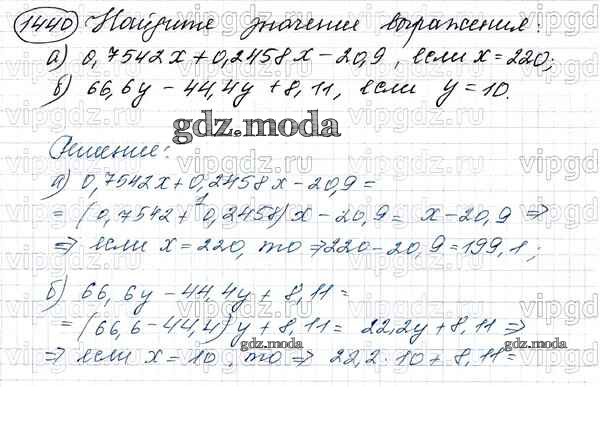 1440 Найдите значение выражения:
а) 0,7542x+0,2458x-20,9, если x=220;
б) 66,6y-44,4y+8,11, если y=10.
gdz.moda
Решение:
а) 0,7542x+0,2458x-20,9=
=(0,7542+0,2458)x-20,9= x-20,9 ⇒
⇒ если x=220, то ⇒220-20,9=199,1;
б) 66,6y-44,4y+8,11=
=(66,6-44,4)y+8,11= 22,2y+8,11 ⇒
⇒ если x=10, то ⇒ 22,2·10+8,11=
gdz.moda
gdz.moda